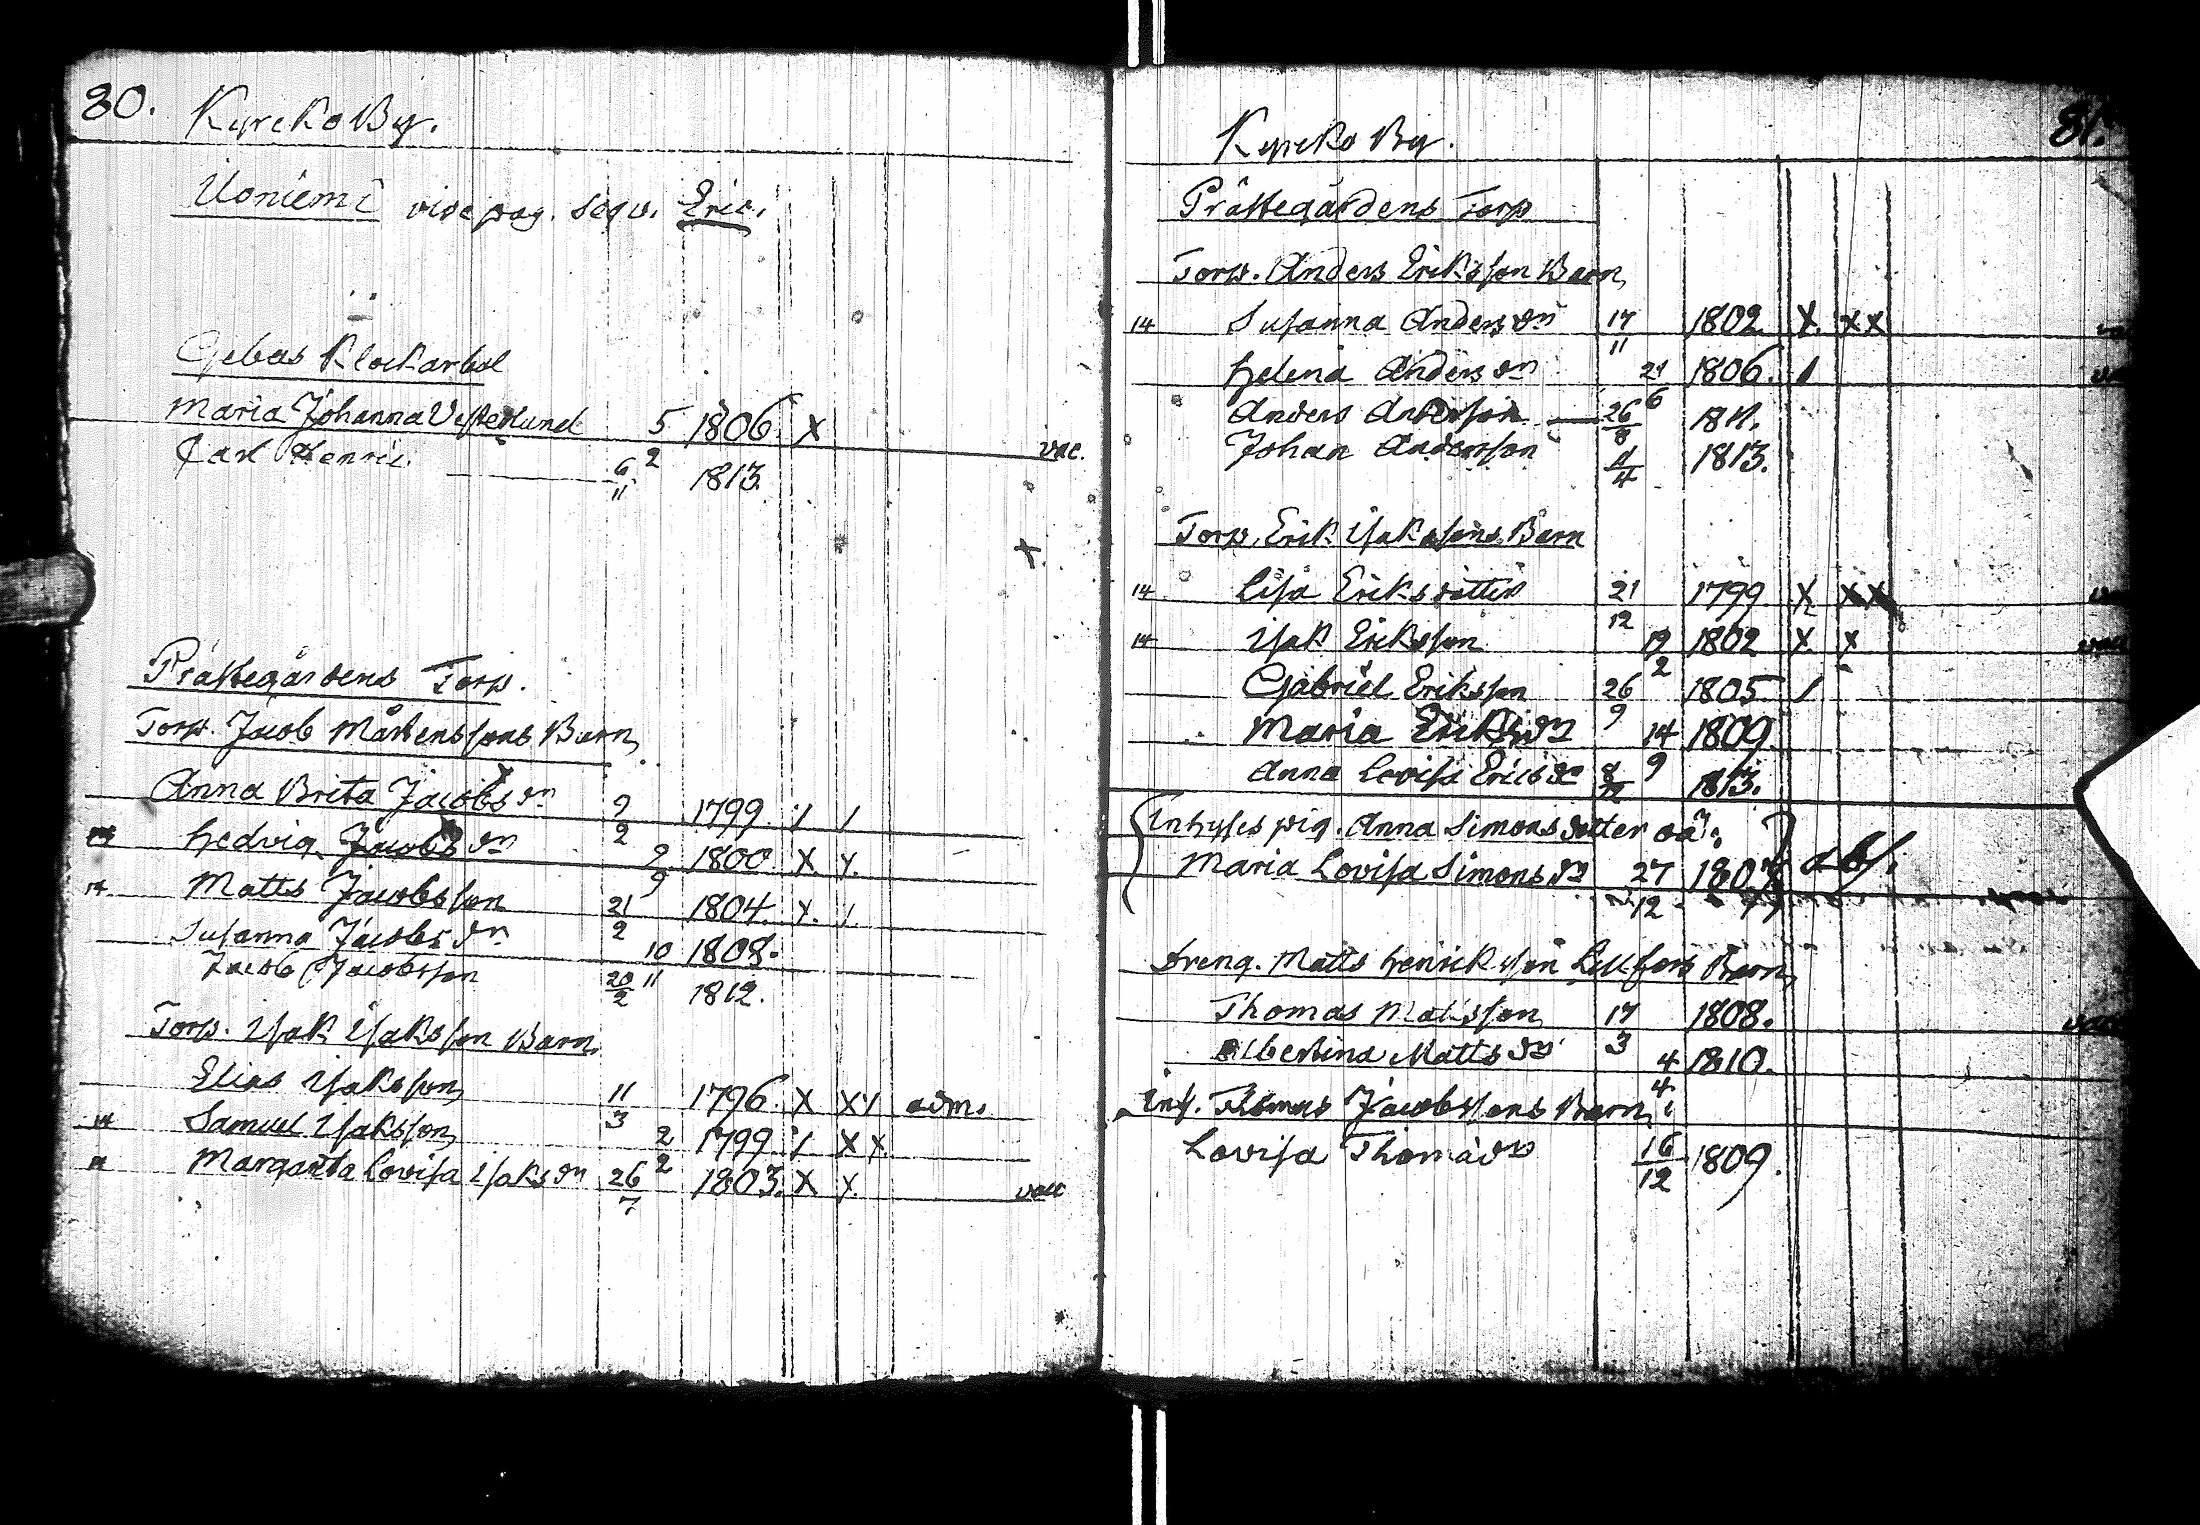 80. Kyrcko By.
Uoniemi vide pag. sequ. Eric.
Gebas Klockarbol
Maria Johanna Vesterlund 5/2 1806. X vac.
Carl Henric. 6/11 1813.
X
Prästegårdens Torp.
Torp. Jacob Mårtenssons Barn,
Anna Brita Jacobs dr 9/2 1799. / /
14 Hedvig Jacobs dr 9/9 1800. X X.
14 Matts Jacobsson 21/2 1804. X. /.
Susanna Jacobs dr 10/11 1808.
Jacob Jacobsson 20/2 1812.
Torp. Isak Isaksson Barn.
Elias Isaksson, 11/3 1796. X X/ adm.
14 Samuel Isaksson, 2/2 1799. / X X.
Margareta Lovisa Isaks dr 26/7 1803. X X. vac
81.
Kyrcko By.
Prästegårdens Torp
Torp. Anders Eriksson Barn,
14 Susanna Anders dr 17/11 1802. X. X X
Helena Anders dr 21/6 1806. /
Anders Andersson 26/8 1811.
Johan Andersson 11/4 1813.
Torp. Erik Isakssons Barn
14 Lisa Eriksdotter 21/12 1799. X X X
14 Isak Eriksson 19/2 1802 X. X vac
Gabriel Eriksson 26/9 1805 /
Maria Eriks dr 14/9 1809.
Anna Lovisa Erics dr 8/12 1813.
Inhyses pig. Anna Simonsdotter oä:
Maria Lovisa Simons dr 27/12 1807 abs.
Dreng. Matts Henriksson Barn,
Thomas Matsson 17/3 1808. vac
Albertina Matts dr 4/4 1810.
Inh. Thomas Jacobssons Barn,
Lovisa Thomä dr 16/12 1809.